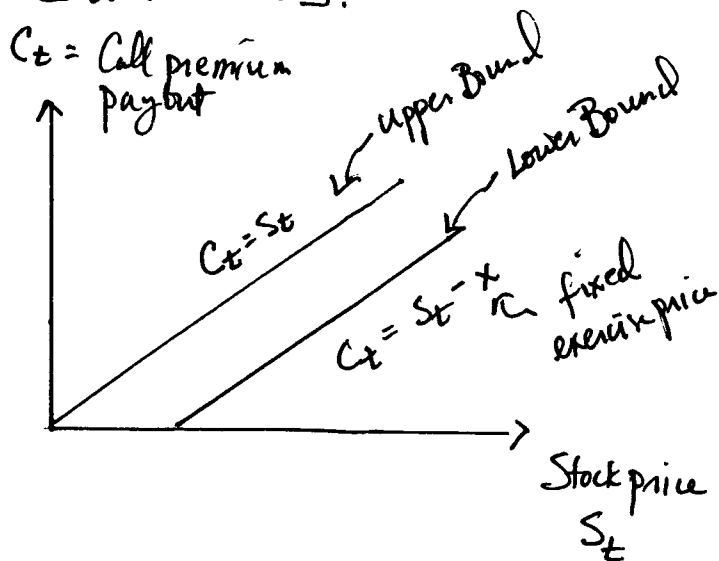 C_t = Call premium
payout
Upper Bound
Lower Bound
C_t = S_t
C_t = S_t - x
fixed
exercise price
Stock price
S_t